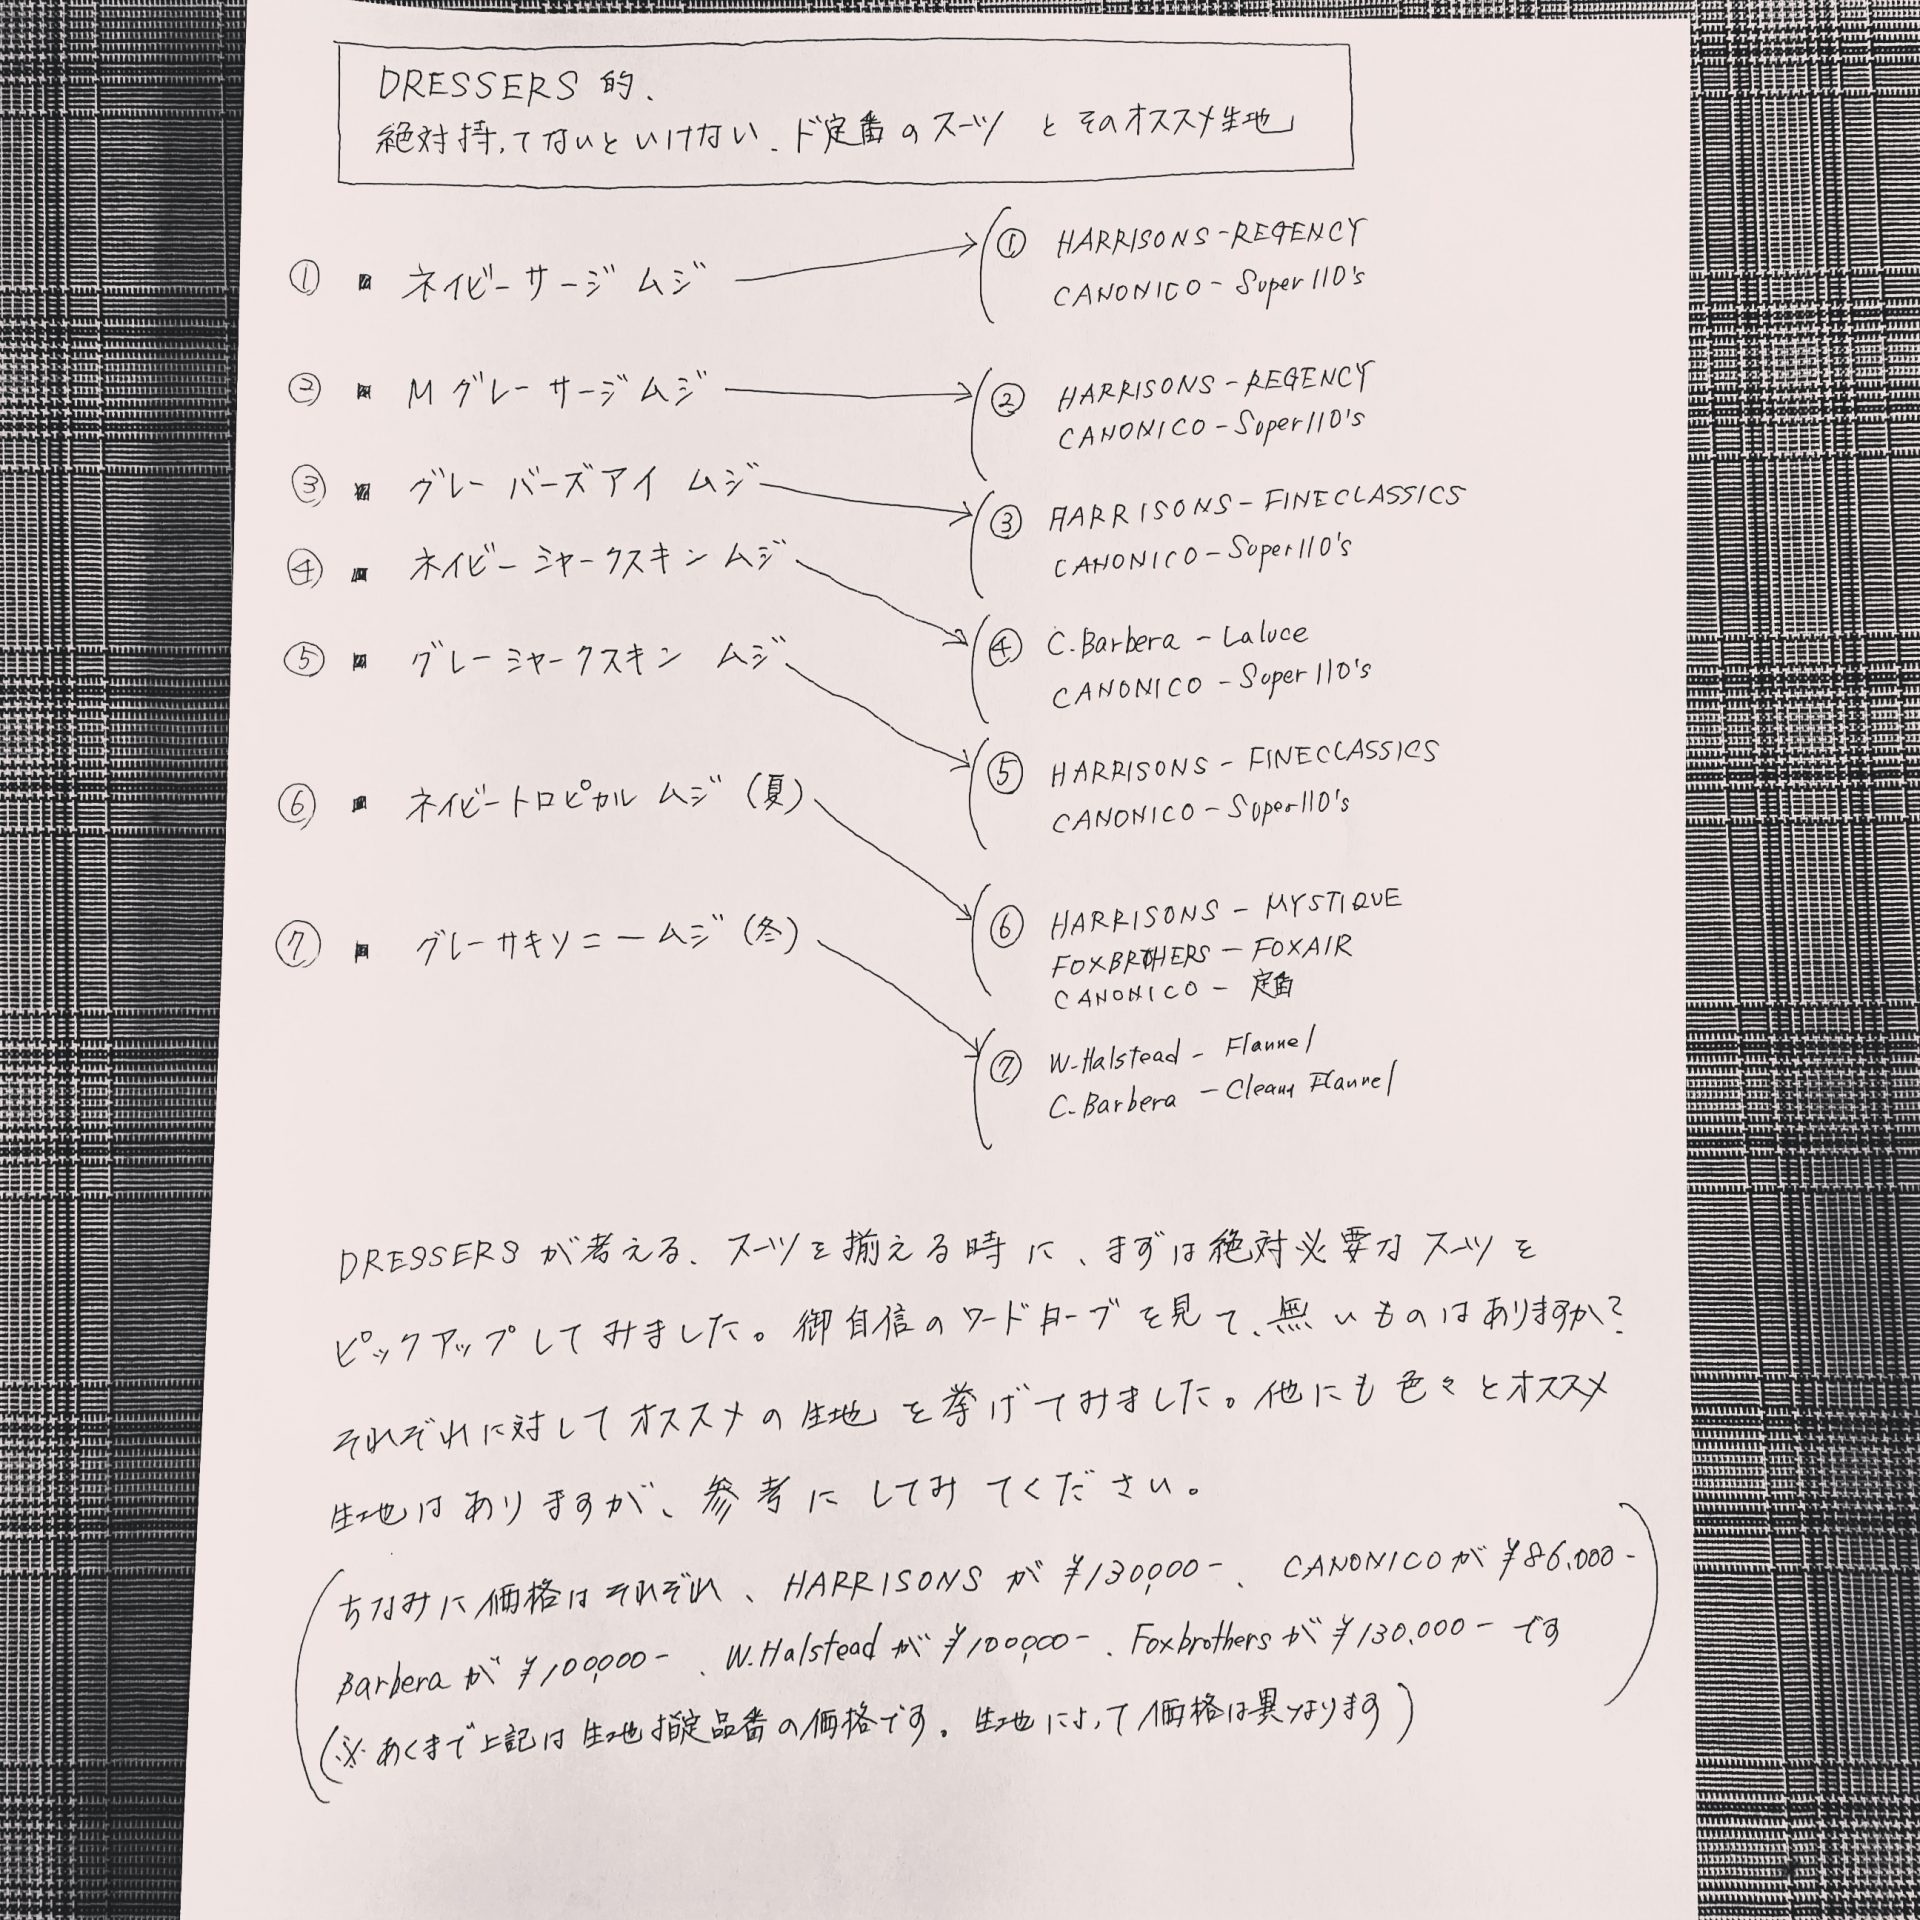 DRESSERS 的、
絶対持ってないといけない、ド定番のスーツ とそのオススメ生地
① ネイビーサージ ムジ
② M グレー サージ ムジ
③ グレー バーズアイ ムジ
④ ネイビー シャークスキン ムジ
⑤ グレーシャークスキン ムジ
⑥ ネイビートロピカル ムジ (夏)
⑦ グレーサキソニームジ (冬)
① HARRISONS - REGENCY
CANONICO - Super110's
② HARRISONS - REGENCY
CANONICO - Super110's
③ HARRISONS - FINECLASSICS
CANONICO - Super110's
④ C.Barbera - Laluce
CANONICO - Super110's
⑤ HARRISONS - FINECLASSICS
CANONICO - Super110's
⑥ HARRISONS - MYSTIQUE
FOXBROTHERS - FOXAIR
CANONICO - 定番
⑦ W.Halstead - Flannel
C.Barbera - Flannel
DRESSERSが考える、スーツを揃える時に、まずは絶対必要なスーツを
ピックアップしてみました。御自信のワードローブを見て、無いものはありますか?
それぞれに対してオススメの生地を挙げてみました。他にも色々とオススメ
生地はありますが、参考にしてみてください。
(ちなみに価格はそれぞれ、HARRISONSが¥130,000-、CANONICOが¥86,000-
Barberaが¥100,000-、W.Halsteadが¥100,000-、Foxbrothersが¥130,000-です
(※あくまで上記は生地指定品番の価格です。生地によって価格は異なります)